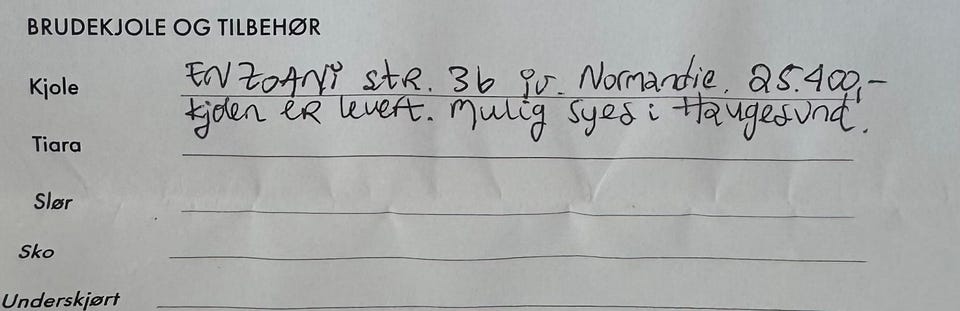 BRUDEKJOLE OG TILBEHØR
Kjole ENZOANI str. 36 iv. Normandie. 25.400,-
kjolen er levert. Mulig syes i Haugesund.
Tiara
Slør
Sko
Underskjørt